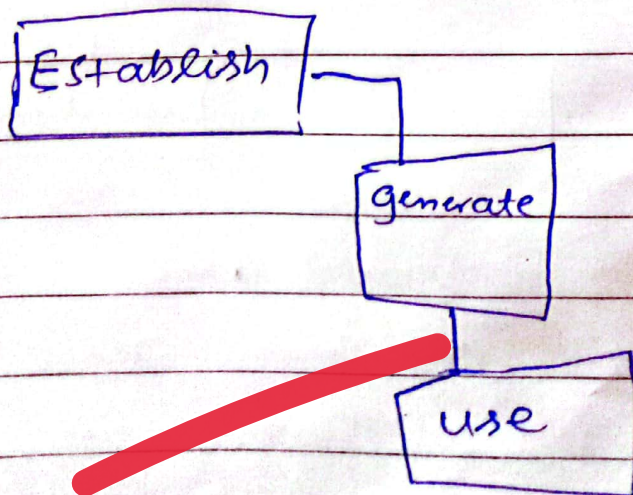 Establish
generate
use